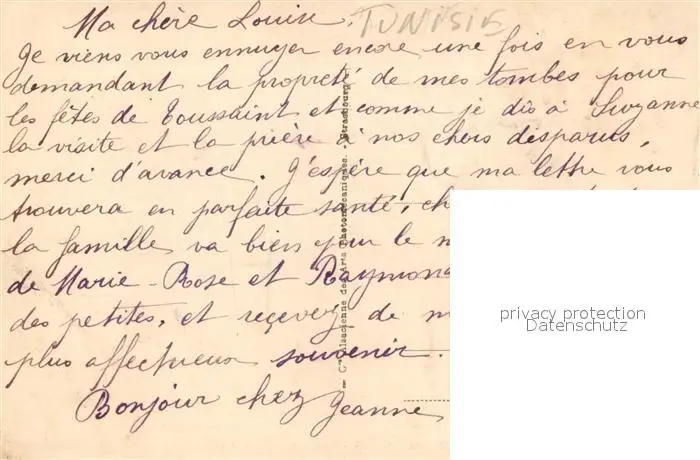 Ma chère Louise,
TUNISIE
Je viens vous ennuyer encore une fois en vous
demandant la propreté de mes tombes pour
les fêtes de Toussaint et comme je dis à Suzanne
la visite et la prière à nos chers disparus,
merci d'avance. J'espère que ma lettre vous
trouvera en parfaite santé, ch
la famille va bien pour le m
de Marie-Rose et Raymon
des petites, et recevez de m
plus affectueux souvenir.
Bonjour chez Jeanne
Cie Alsacienne des Arts Photomécaniques. - Strasbourg
privacy protection
Datenschutz